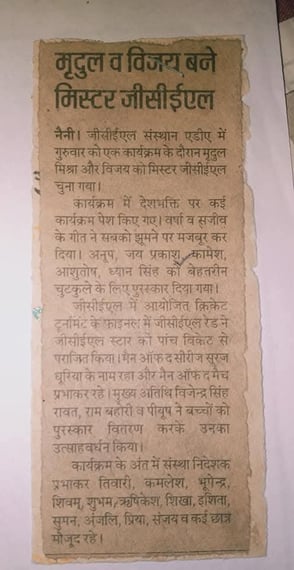 मृदुल व विजय बने
मिस्टर जीसीईएल
नैनी। जीसीईएल संस्थान एडीए में
गुरुवार को एक कार्यक्रम के दौरान मृदुल
मिश्रा और विजय को मिस्टर जीसीईएल
चुना गया।
कार्यक्रम में देशभक्ति पर कई
कार्यक्रम पेश किए गए। वर्षा व सजीव
के गीत ने सबको झूमने पर मजबूर कर
दिया। अनुप, जय प्रकाश, कामेश,
आशुतोष, ध्यान सिंह को बेहतरीन
चुटकुले के लिए पुरस्कार दिया गया।
जीसीईएल में आयोजित क्रिकेट
टूर्नामेंट के फाइनल में जीसीईएल रेड ने
जीसीईएल स्टार को पांच विकेट से
पराजित किया। मैन ऑफ द सीरीज सूरज
धूरिया के नाम रहा और मैन ऑफ द मैच
प्रभाकर रहे। मुख्य अतिथि विजेन्द्र सिंह
रावत, राम बहोरी व पीयूष ने बच्चों को
पुरस्कार वितरण करके उनका
उत्साहवर्धन किया।
कार्यक्रम के अंत में संस्था निदेशक
प्रभाकर तिवारी, कमलेश, भूपेन्द्र,
शिवम्, शुभम, ऋषिकेश, शिखा, इशिता,
सुमन, अंजलि, प्रिया, संजय व कई छात्र
मौजूद रहे।